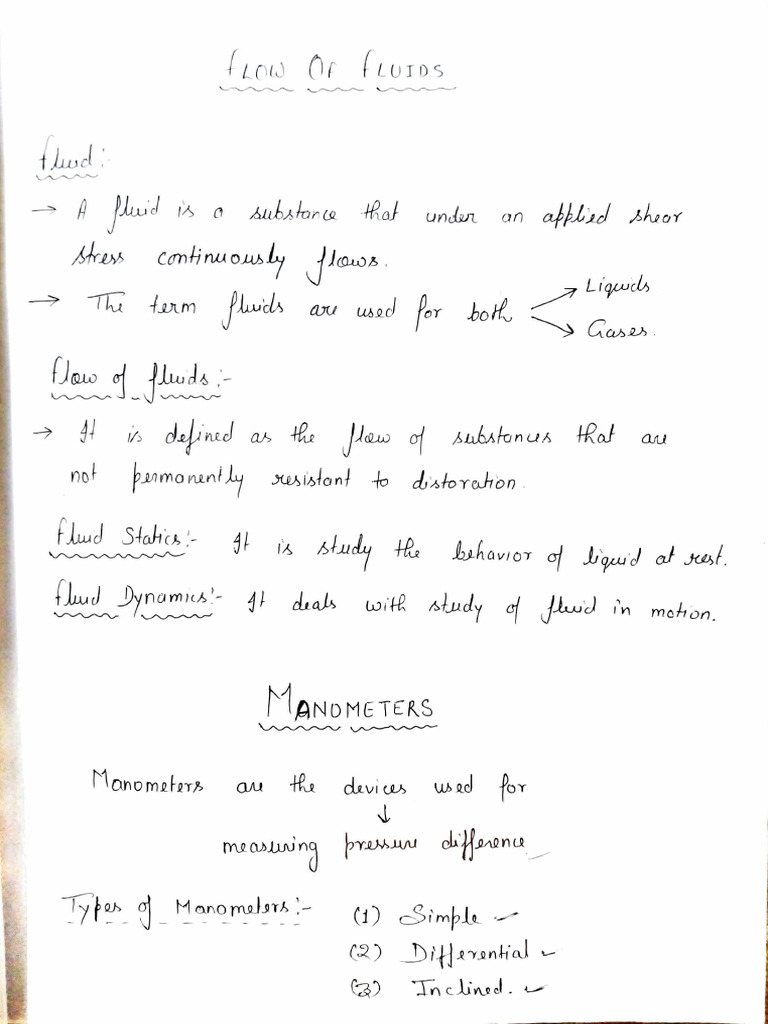 FLOW OF FLUIDS
Fluid:
→ A fluid is a substance that under an applied shear
stress continuously flows.
→ The term fluids are used for both → Liquids
→ Gases.
Flow of fluids:-
→ It is defined as the flow of substances that are
not permanently resistant to distoration.
Fluid Statics:- It is study the behavior of liquid at rest.
Fluid Dynamics:- It deals with study of fluid in motion.
MANOMETERS
Manometers are the devices used for
↓
measuring pressure difference
Types of Manometers:- (1) Simple
(2) Differential
(3) Inclined.